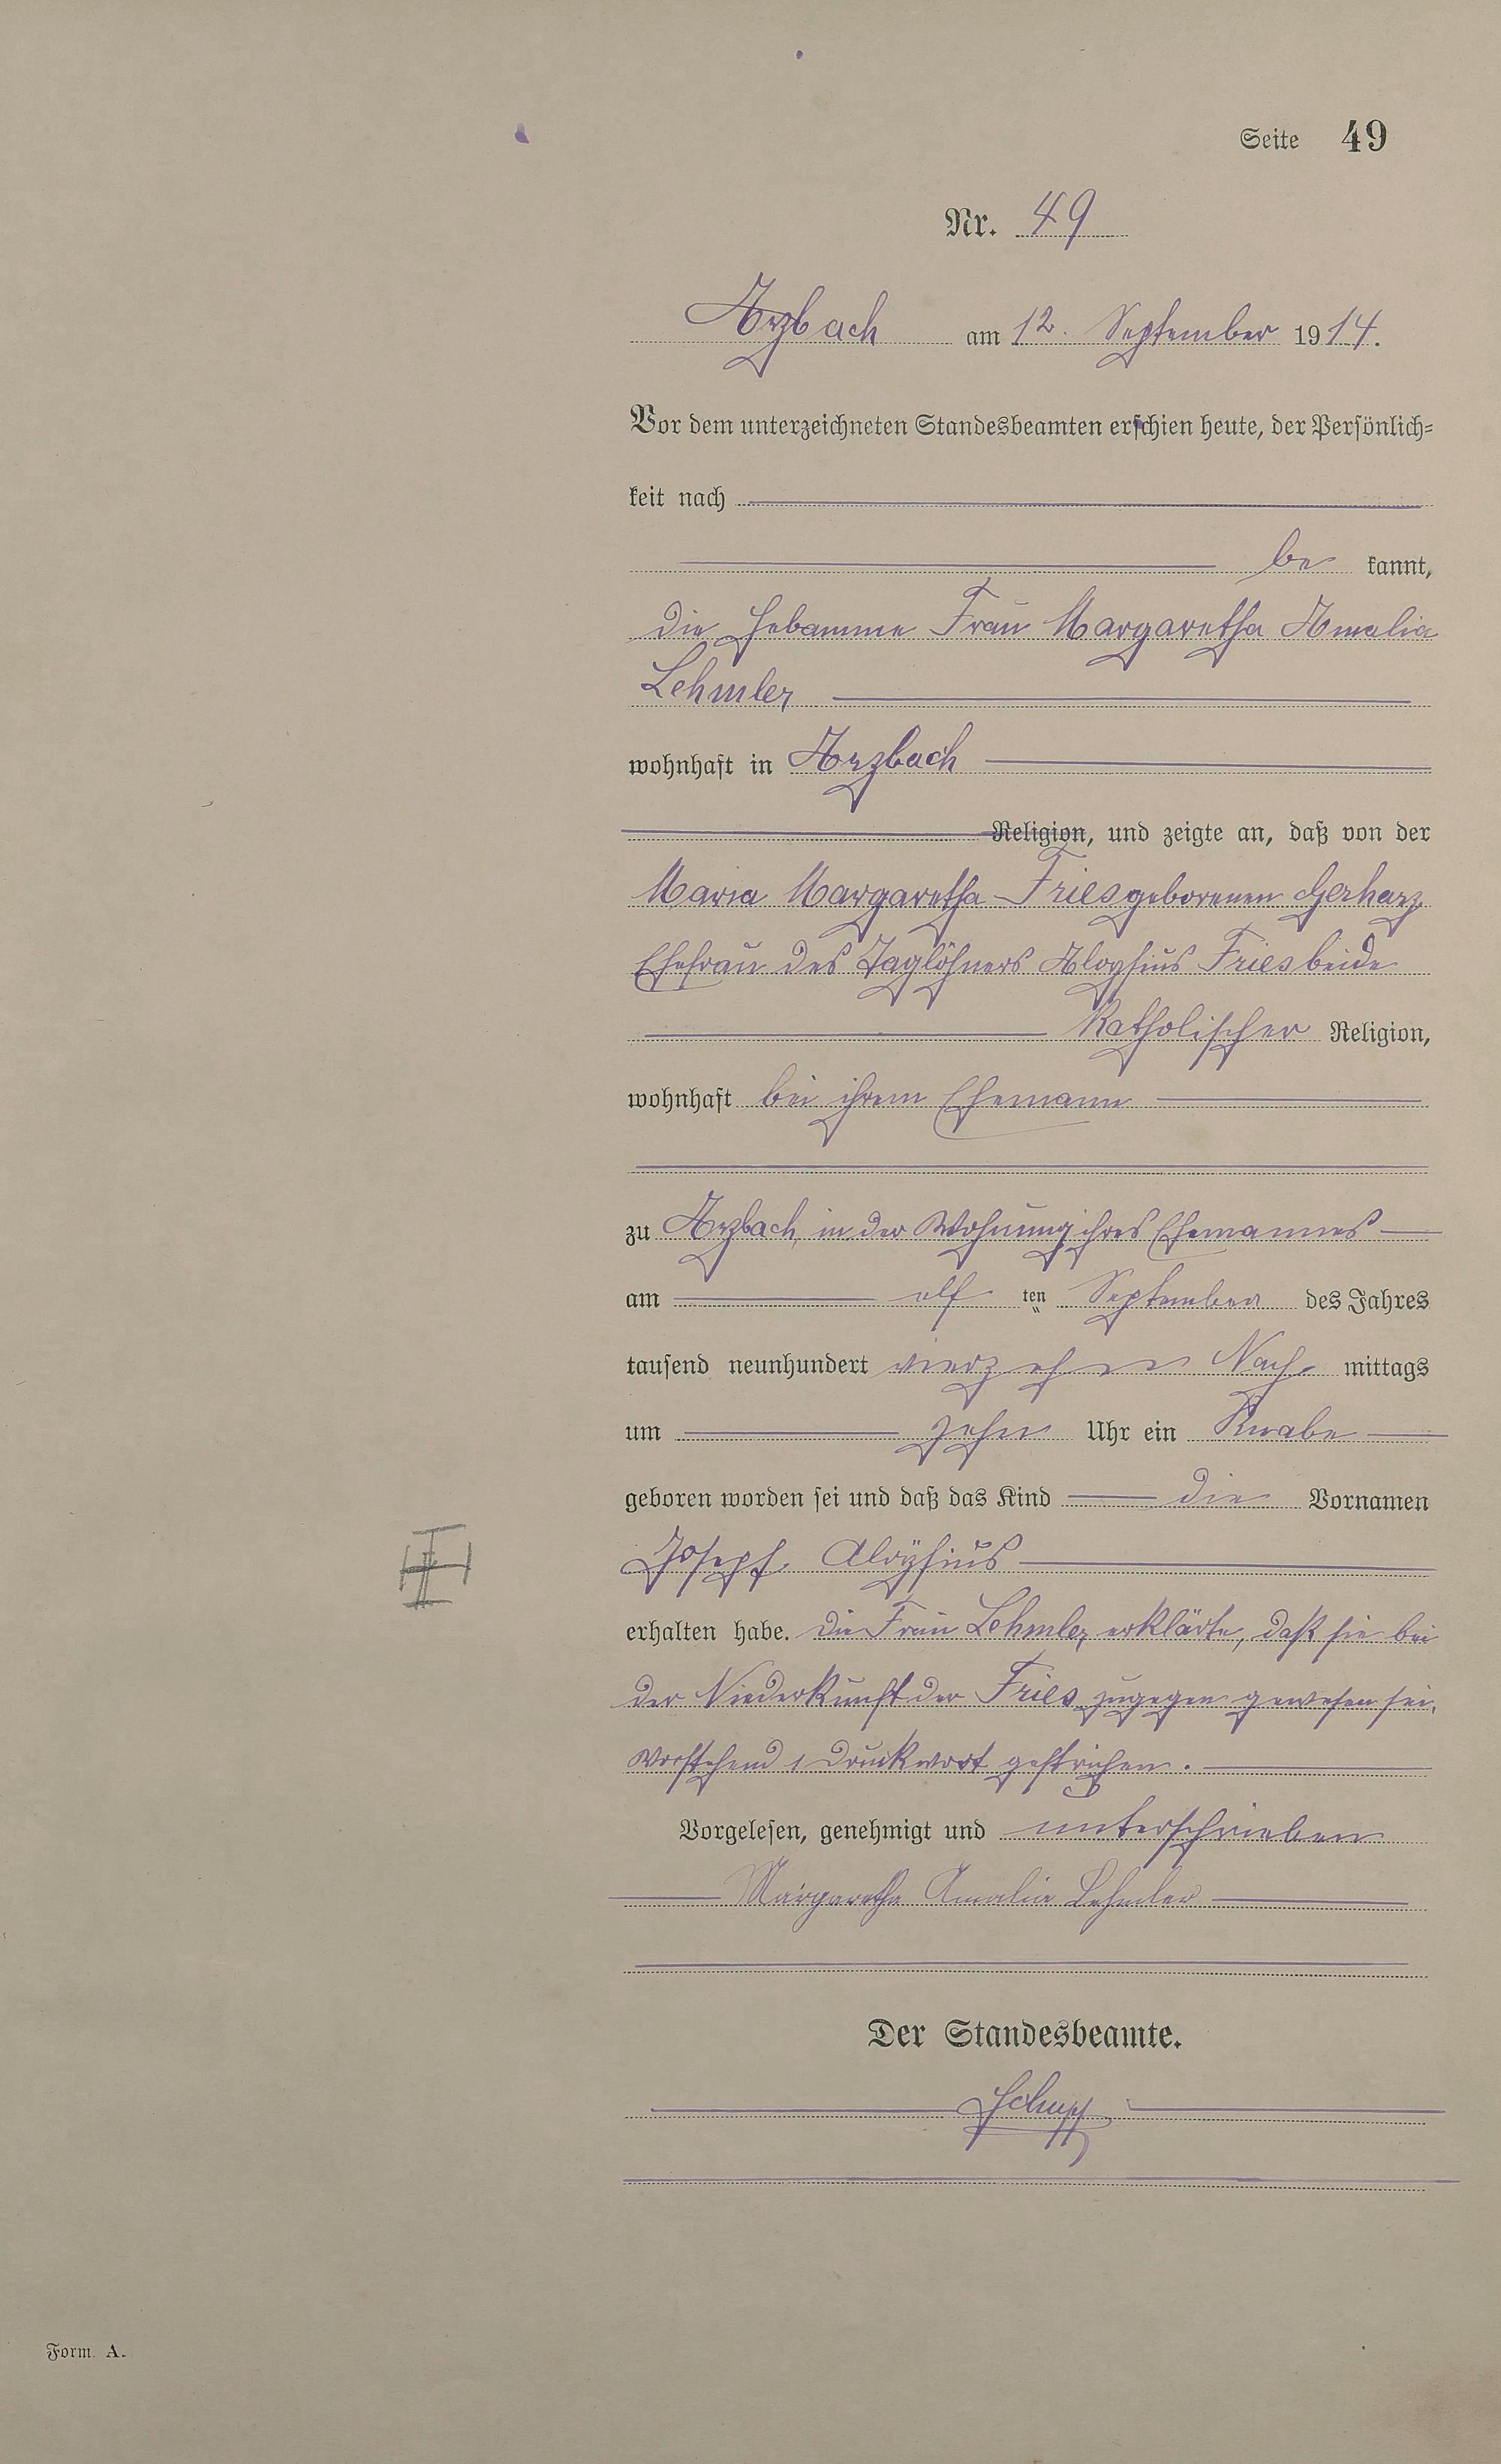 Seite 49
Nr. 49
Arzbach am 12. September 1914.
Vor dem unterzeichneten Standesbeamten erschien heute, der Persönlich=
keit nach
be kannt,
die Hebamme Frau Margaretha Amalia
Lehmler
wohnhaft in Arzbach
Religion, und zeigte an, daß von der
Maria Margaretha Fries geborenen Gerharz
Ehefrau des Taglöhners Aloysius Fries beide
katholischer Religion,
wohnhaft bei ihrem Ehemann
zu Arzbach, in der Wohnung ihres Ehemannes
am elf ten September des Jahres
tausend neunhundert vierzehn Nach mittags
um zehn Uhr ein Knabe
geboren worden sei und daß das Kind die Vornamen
Joseph Aloÿsius
erhalten habe. Die Frau Lehmler erklärte, daß sie bei
der Niederkunft der Fries zugegen gewesen sei.
Vorstehend 1 Druckwort gestrichen.
Vorgelesen, genehmigt und unterschrieben
Margaretha Amalia Lehmler
Der Standesbeamte.
Schupp
Form. A.